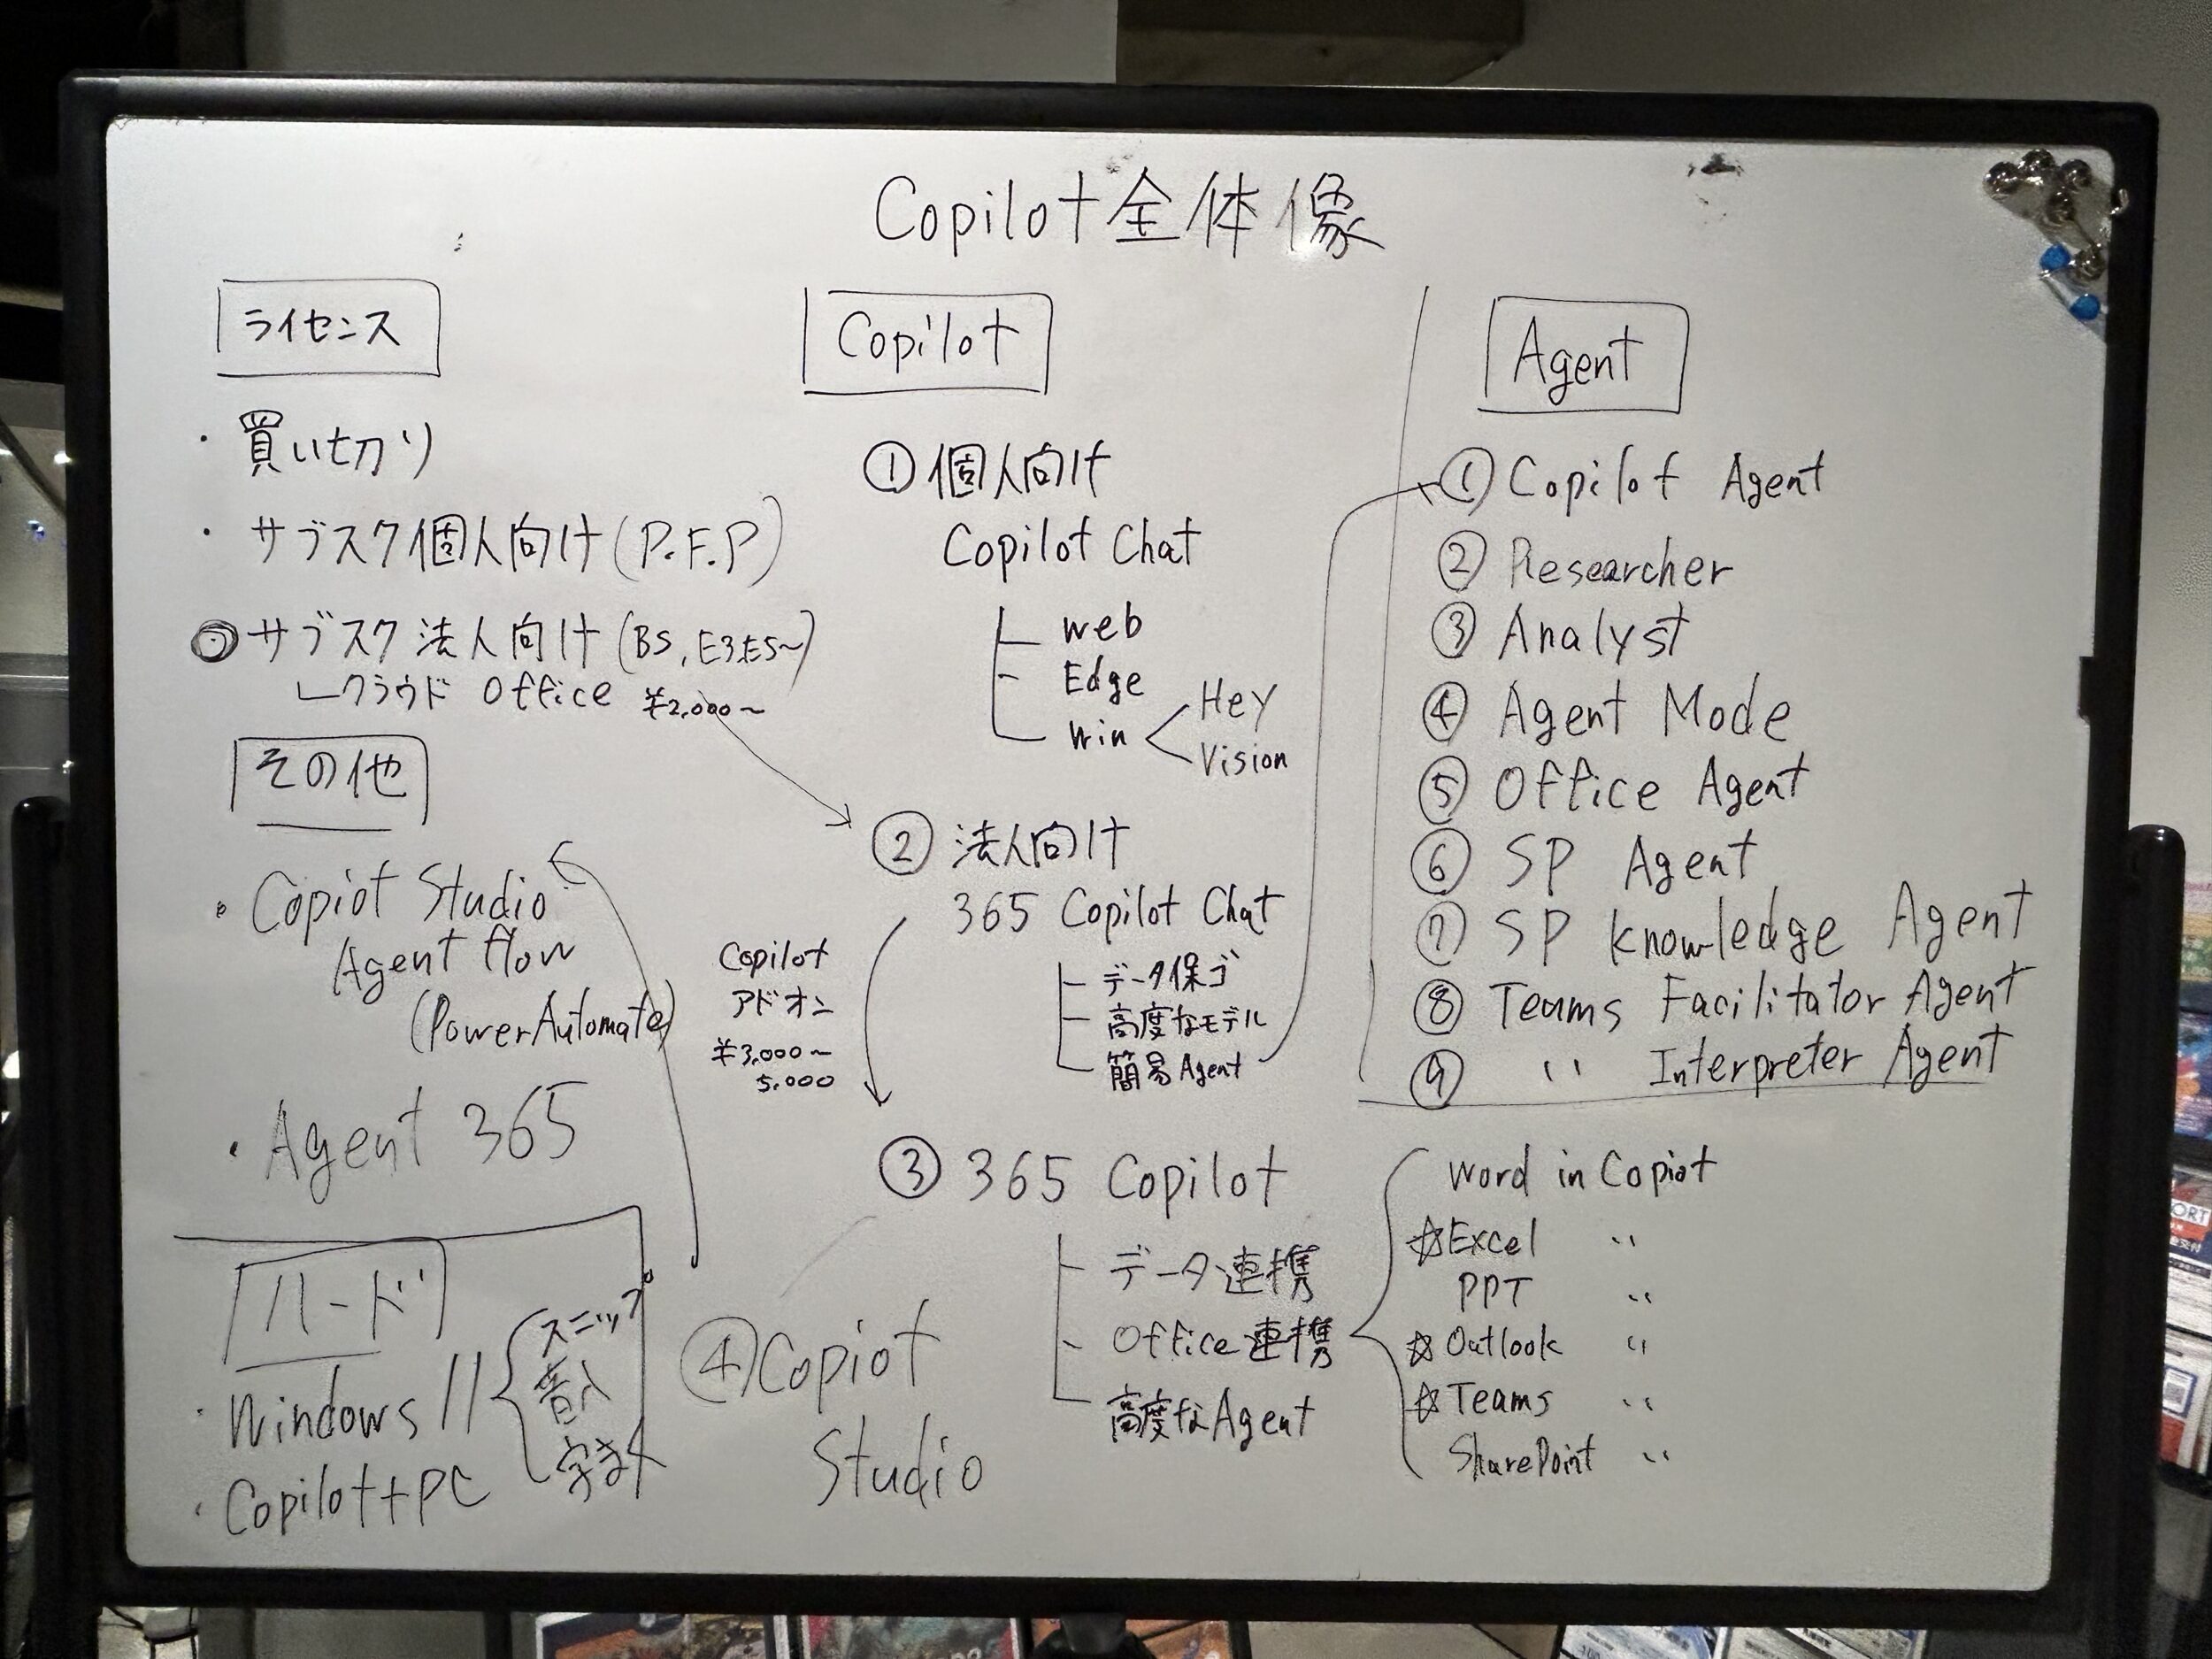 Copilot全体像
ライセンス
・買い切り
・サブスク個人向け(P.F.P)
サブスク法人向け(BS,E3,E5~)
クラウド Office ¥2,000~
その他
・Copiot Studio
Agent flow
(PowerAutomate)
・Agent 365
ハード
・Windows 11
スニップ
音入
字まく
・Copilot+PC
Copilot
①個人向け
Copilot Chat
web
Edge
Win
Hey
Vision
②法人向け
365 Copilot Chat
データ保ゴ
高度なモデル
簡易Agent
Copilot
アドオン
¥3,000~
5,000
③365 Copilot
データ連携
Office連携
高度なAgent
④Copiot
Studio
Agent
①Copilot Agent
②Researcher
③Analyst
④Agent Mode
⑤Office Agent
⑥SP Agent
⑦SP knowledge Agent
⑧Teams Facilitator Agent
⑨ 〃 Interpreter Agent
Word in Copiot
☆Excel 〃
PPT 〃
☆Outlook 〃
☆Teams 〃
SharePoint 〃